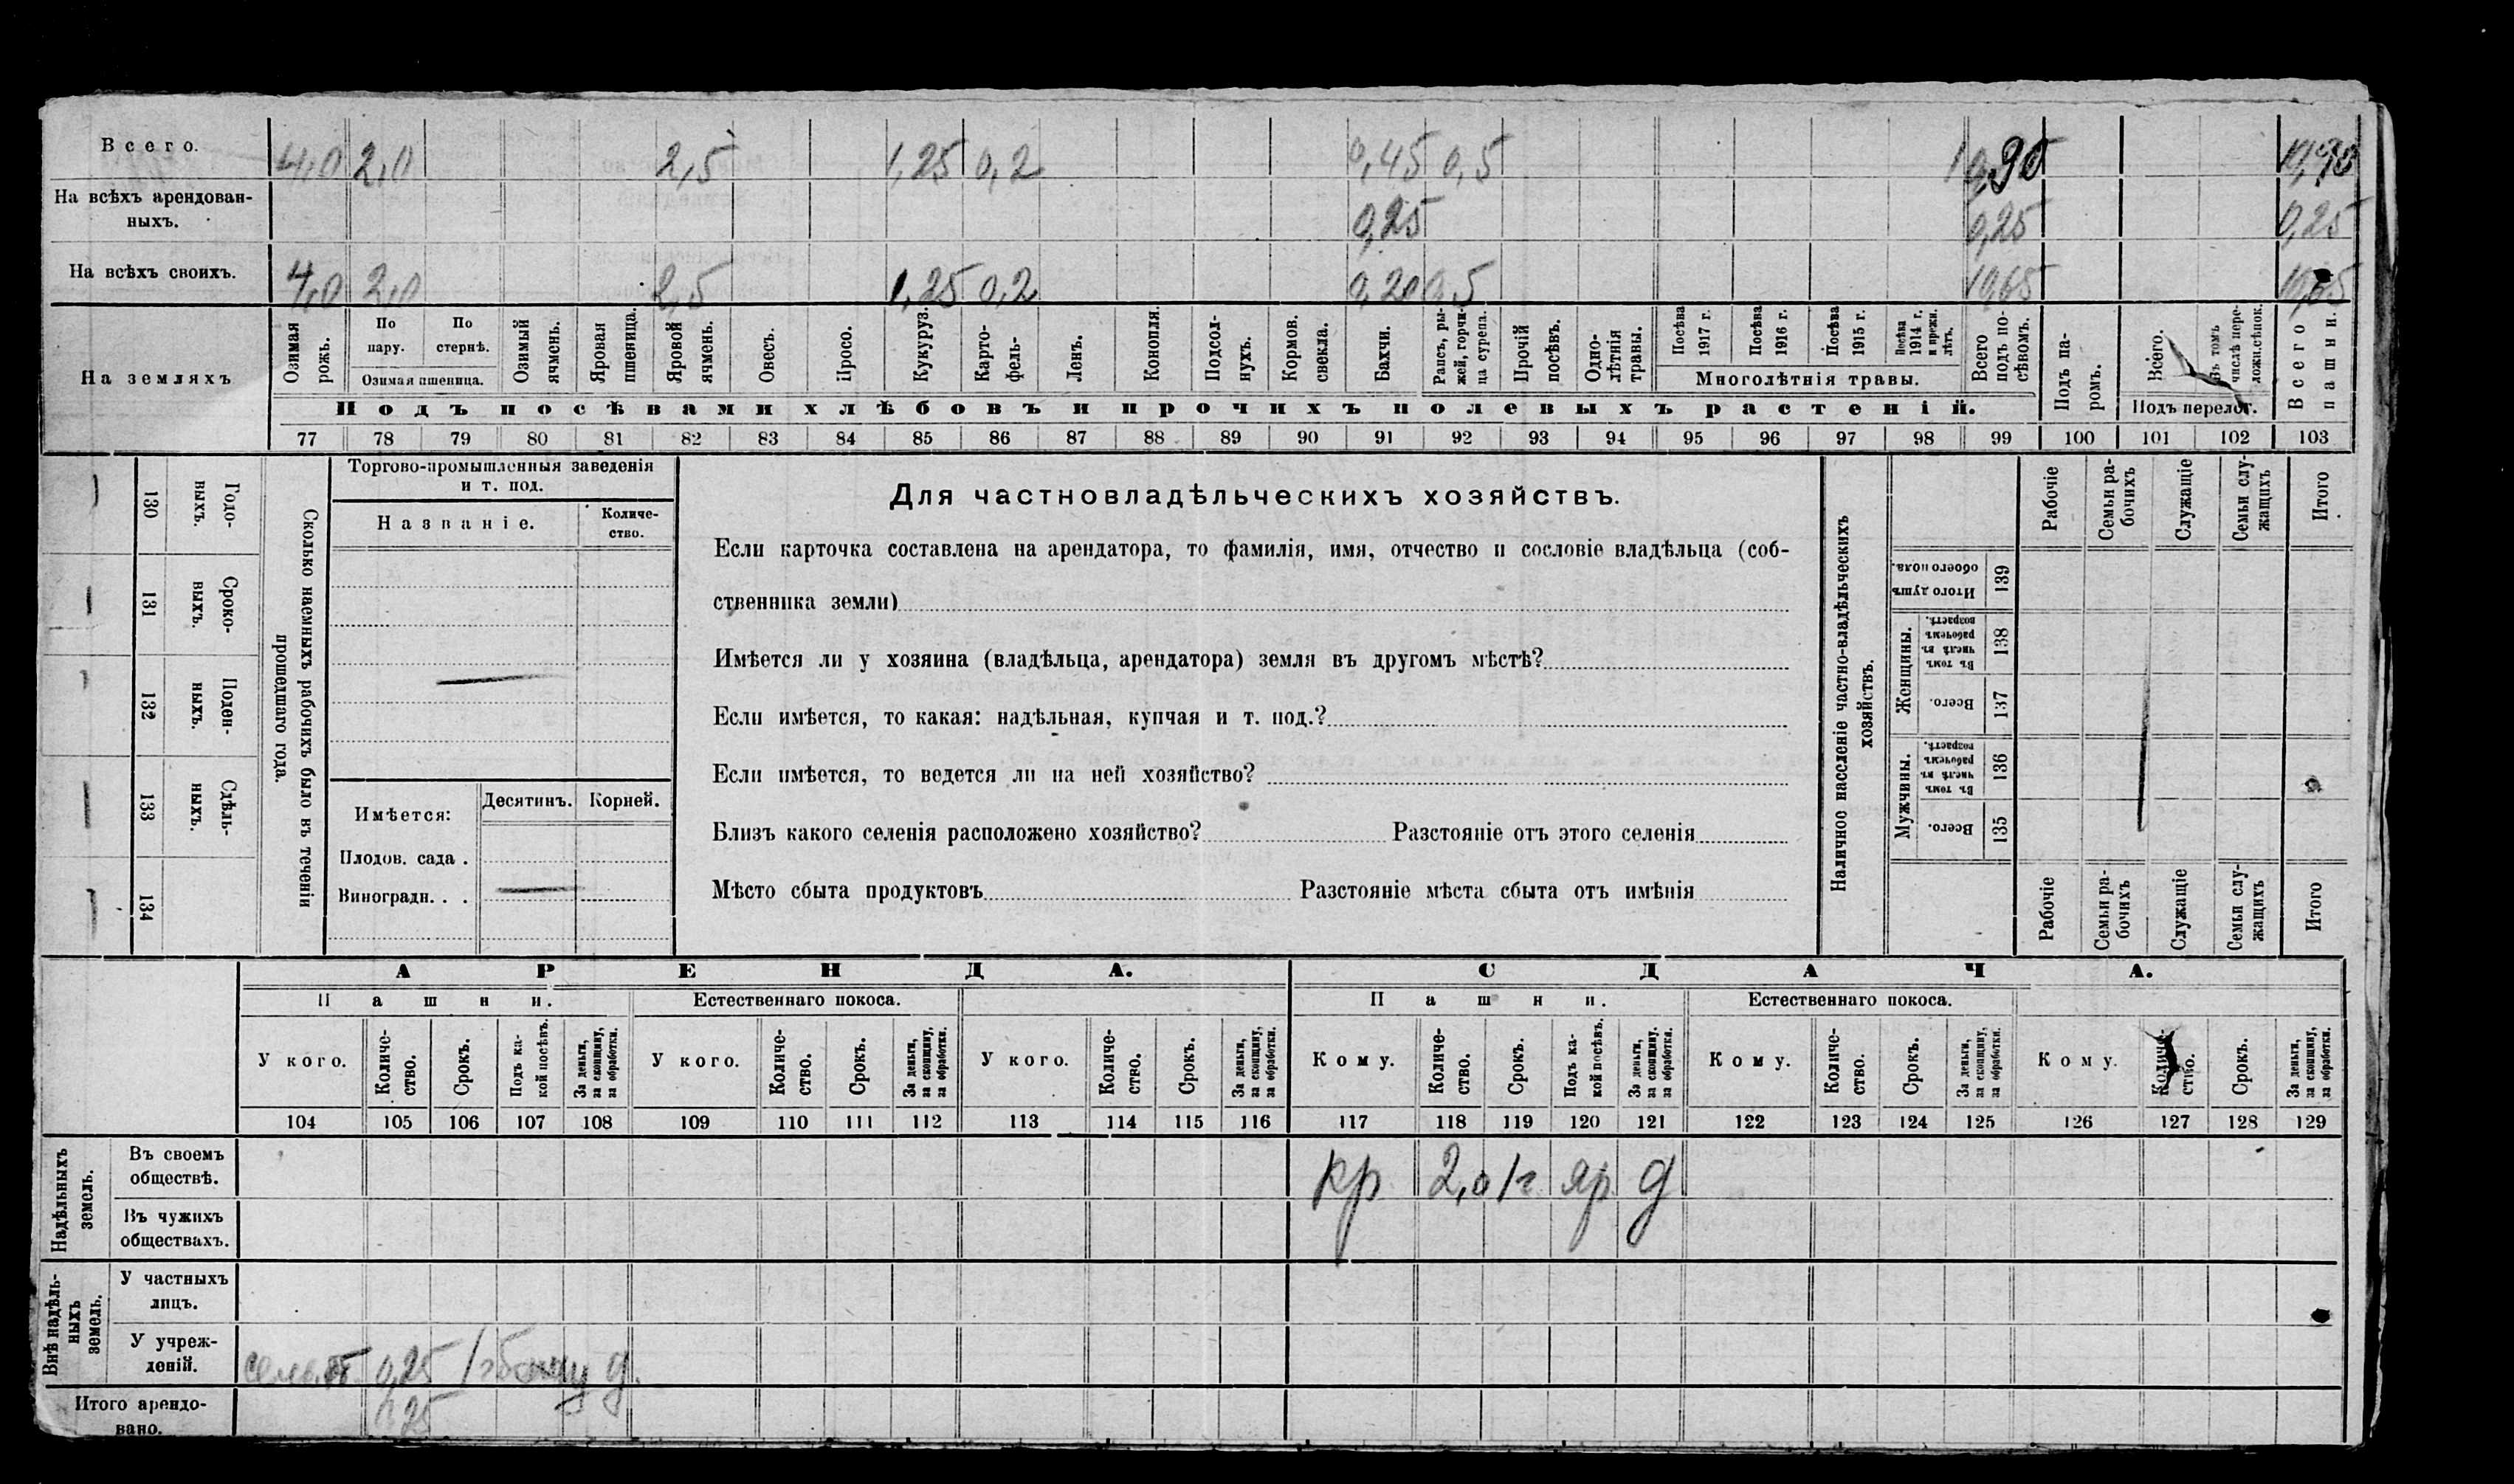 Всего. 4,0 2,0 2,5 1,25 0,2 0,45 0,5 10,90 10,90
На всѣхъ арендован-
ныхъ. 0,25 0,25 0,25
На всѣхъ своихъ. 4,0 2,0 2,5 1,25 0,2 0,20 0,5 10,65 10,65
На земляхъ
Озимая рожь.
По пару.
По стернѣ.
Озимая пшеница.
Озимый ячмень.
Яровая пшеница.
Яровой ячмень.
Овесъ.
Просо.
Кукуруз.
Карто-
фель-
Ленъ.
Конопля.
Подсол-
нухъ.
Кормов. свекла.
Бахчи.
Рапсъ, ры-
жей, горчи-
ца сурепа.
Прочій посѣвъ.
Одно-
лѣтнія травы.
Посѣва 1917 г.
Посѣва 1916 г.
Посѣва 1915 г.
Посѣва 1914 г. и прежн. лѣтъ.
Многолѣтнія травы.
Всего подъ по-
сѣвомъ.
Подъ посѣвами хлѣбовъ и прочихъ полевыхъ растеній.
Подъ па-
ромъ.
Всего.
Въ томъ числѣ пере-
ложн.сѣнок.
Подъ перелог.
Всего пашни.
77 78 79 80 81 82 83 84 85 86 87 88 89 90 91 92 93 94 95 96 97 98 99 100 101 102 103
130 Годо-
выхъ.
131 Сроко-
выхъ.
132 Поден-
ныхъ.
133 Сдѣль-
ныхъ.
134
Сколько наемныхъ рабочихъ было въ теченіи
прошедшаго года.
Торгово-промышленныя заведенія
и т. под.
Названіе.
Количе-
ство.
Имѣется:
Десятинъ. Корней.
Плодов. сада .
Виноградн. . .
Для частновладѣльческихъ хозяйствъ.
Если карточка составлена на арендатора, то фамилія, имя, отчество и сословіе владѣльца (соб-
ственника земли)
Имѣется ли у хозяина (владѣльца, арендатора) земля въ другомъ мѣстѣ?
Если имѣется, то какая: надѣльная, купчая и т. под.?
Если имѣется, то ведется ли на ней хозяйство?
Близъ какого селенія расположено хозяйство? Разстояніе отъ этого селенія
Мѣсто сбыта продуктовъ Разстояніе мѣста сбыта отъ имѣнія
Наличное населеніе частно-владѣльческихъ
хозяйствъ.
Рабочіе
Семьи ра-
бочихъ
Служащіе
Семьи слу-
жащихъ
Итого
Итого душъ обоего пола. 139
Женщины.
Въ томъ числѣ въ рабочемъ возрастѣ. 138
Всего. 137
Мужчины.
Въ томъ числѣ въ рабочемъ возрастѣ. 136
Всего. 135
Рабочіе
Семьи ра-
бочихъ
Служащіе
Семьи слу-
жащихъ
Итого
АРЕНДА. СДАЧА.
Пашни. Естественнаго покоса. Пашни. Естественнаго покоса.
У кого.
Количе-
ство.
Срокъ.
Подъ ка-
кой посѣвъ.
За деньги, за скопщину, за обработки.
У кого.
Количе-
ство.
Срокъ.
За деньги, за скопщину, за обработки.
У кого.
Количе-
ство.
Срокъ.
За деньги, за скопщину, за обработки.
Кому.
Количе-
ство.
Срокъ.
Подъ ка-
кой посѣвъ.
За деньги, за скопщину, за обработки.
Кому.
Количе-
ство.
Срокъ.
За деньги, за скопщину, за обработки.
Кому.
Количе-
ство.
Срокъ.
За деньги, за скопщину, за обработки.
104 105 106 107 108 109 110 111 112 113 114 115 116 117 118 119 120 121 122 123 124 125 126 127 128 129
Надѣльныхъ земель.
Въ своемъ
обществѣ. кр 2,0 1г яр д
Въ чужихъ
обществахъ.
Внѣ надѣль-
ныхъ земель.
У частныхъ
лицъ.
У учреж-
деній. 0,25 1г д.
Итого арендо-
вано. 0,25